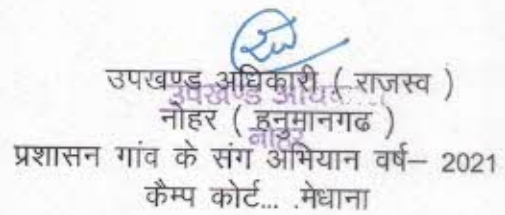 उपखण्ड अधिकारी ( राजस्व )
नोहर ( हनुमानगढ )
प्रशासन गांव के संग अभियान वर्ष– 2021
कैम्प कोर्ट... .मेधाना